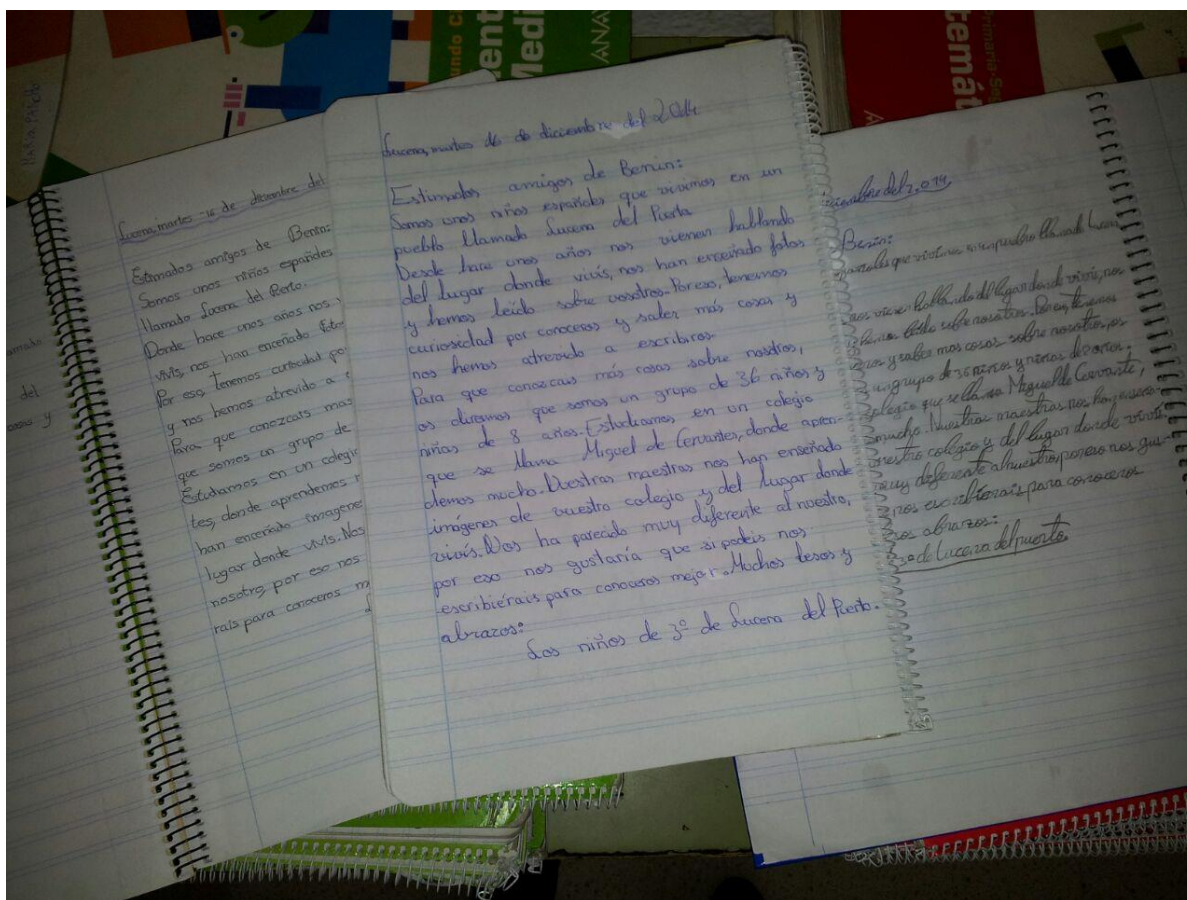 undo Ci
ent
Medi
ANAYA
Primaria-Seg
temát
amado
del
cosas y
Lucena, martes 16 de diciembre del
Estimados amigos de Benin:
Somos unos niños españoles
llamado Lucena del Perto.
Donde hace unos años nos v
vivís, nos han enceñado foto
Por eso, tenemos curiocidad po
y nos hemos atrevido a
Para que conozcais mas
que somos un grupo de
Estudamos en un colegio
tes, donde aprendemos
han enceñado imagene
lugar donde vivís. Nos
nosotro, por eso nos
rais para conoceros m
Lucena, martes 16 de diciembre del 2014
Estimados amigos de Benin:
Somos unos niños españoles que vivimos en un
pueblo llamado Lucena del Puerto
Desde hace unos años nos vienen hablando
del lugar donde vivís, nos han enseñado fotos
y hemos leído sobre vosotros. Por eso, tenemos
curiosidad por conoceros y saber más cosas y
nos hemos atrevido a escribiros.
Para que conozcais más cosas sobre nosotros,
os diremos que somos un grupo de 36 niños y
niñas de 8 años. Estudiamos en un colegio
que se llama Miguel de Cervantes, donde apren-
demos mucho. Nuestras maestras nos han enseñado
imágenes de vuestro colegio y del lugar donde
vivís. Nos ha parecido muy diferente al nuestro,
por eso nos gustaría que si podeis nos
escribiérais para conoceros mejor. Muchos besos y
abrazos:
Los niños de 3º de Lucena del Puerto.
diciembre del 2,014
Benin:
españoles que vivimos en un pueblo llamado Lucena
nos vienen hablando del lugar donde vivís, nos
hemos leído sobre vosotros. Por eso, tenemos
y saber mas cosas sobre nosotros, os
un grupo de 36 niños y niñas de 8 años.
colegio que se llama Miguel de Cervante,
mucho. Nuestras maestras nos han ense-
nuestro colegio y del lugar donde vivís.
muy diferente al nuestro, por eso nos gus-
nos escribierais para conoceros
abrazos:
3º de Lucena del puerto